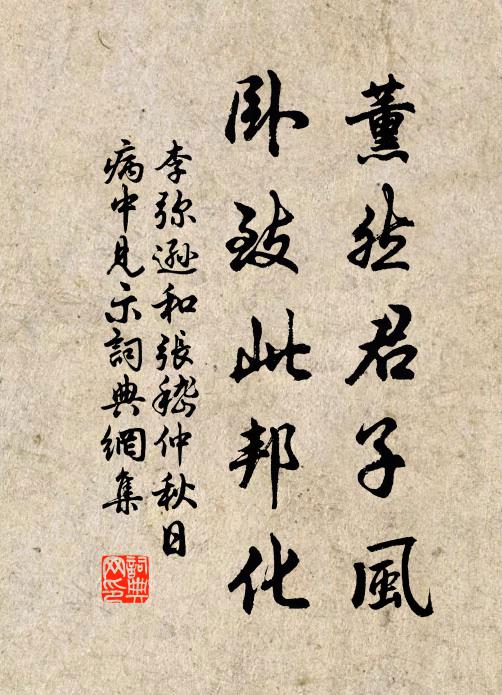 薰然君子風
卧致此邦化
李弥遜和張嵇仲秋日
病中見示詞典網集
詞典
网印